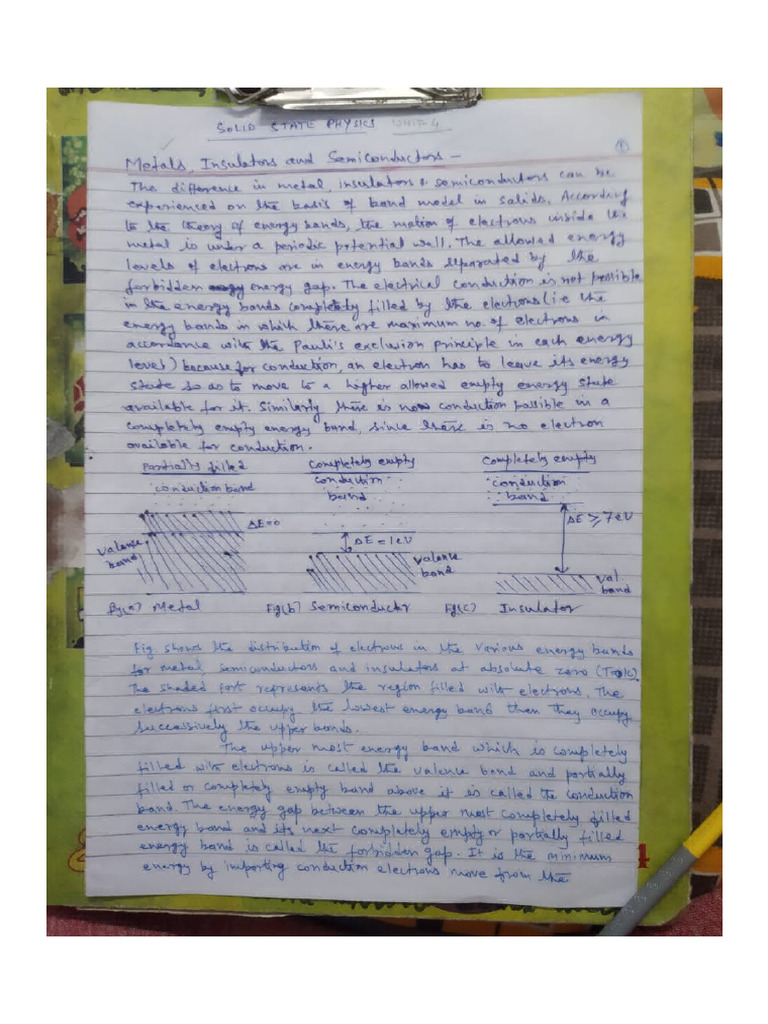 SOLID STATE PHYSICS UNIT-4
1
Metals, Insulators and Semiconductors -
The difference in metal, insulators & semiconductors can be
experienced on the basis of band model in solids. According
to the theory of energy bands, the motion of electrons inside the
metal is under a periodic potential well. The allowed energy
levels of electrons are in energy bands separated by the
forbidden energy gap. The electrical conduction is not possible
in the energy bands completely filled by the electrons (i.e the
energy bands in which there are maximum no. of electrons in
accordance with the Pauli's exclusion principle in each energy
level) because for conduction, an electron has to leave its energy
state so as to move to a higher allowed empty energy state
available for it. Similarly there is now conduction possible in a
completely empty energy band, since there is no electron
available for conduction.
Partially filled
conduction band
Completely empty
conduction
band
Completely empty
conduction
band
ΔE=0
ΔE = 1eV
ΔE ≥ 7eV
Valence
band
Valence
band
Val.
band
Fig(a) Metal
Fig(b) Semiconductr
Fig(c) Insulator
Fig. shows the distribution of electrons in the various energy bands
for metal, semiconductors and insulators at absolute zero (T=0k).
The shaded part represents the region filled with electrons. The
electrons first occupy the lowest energy band then they occupy
successively the upper bands.
The upper most energy band which is completely
filled with electrons is called the valence band and partially
filled or completely empty band above it is called the conduction
band. The energy gap between the upper most completely filled
energy band and its next completely empty or partially filled
energy band is called the forbidden gap. It is the minimum
energy by importing conduction electrons move from the